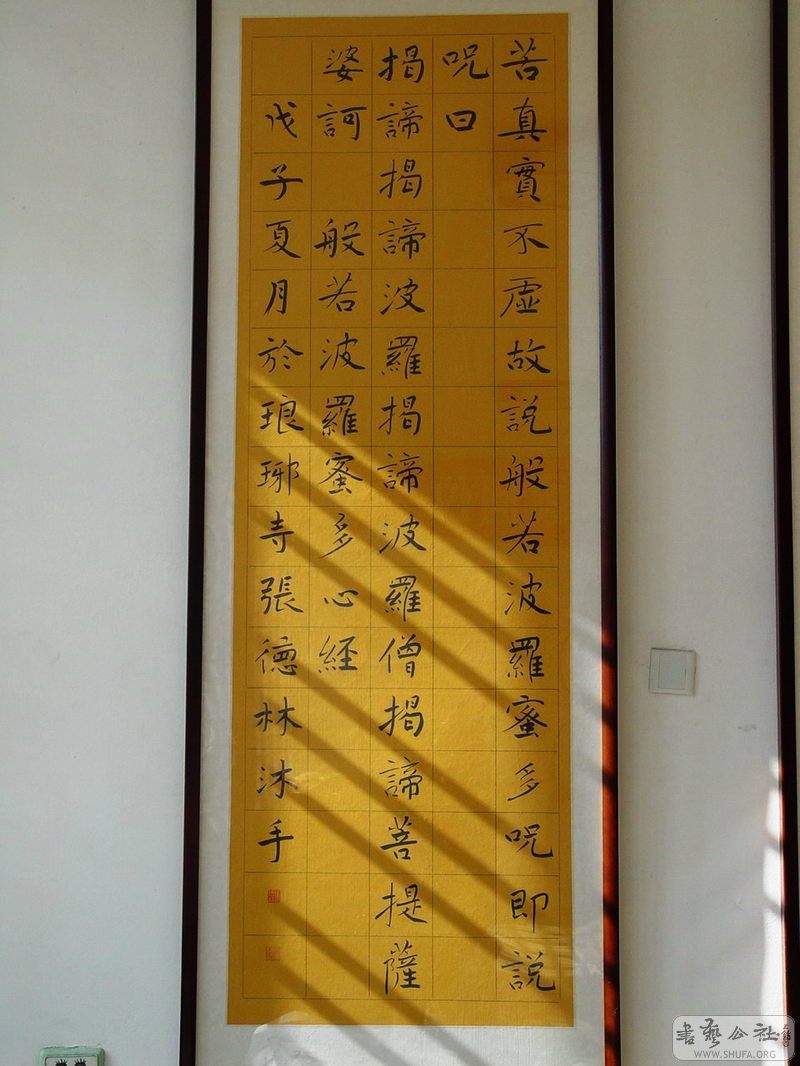 苦真實不虛故說般若波羅蜜多呪即說
呪曰
揭諦揭諦波羅揭諦波羅僧揭諦菩提薩
婆訶 般若波羅蜜多心經
戊子夏月於琅琊寺張德林沐手
書藝公社
WWW.SHUFA.ORG